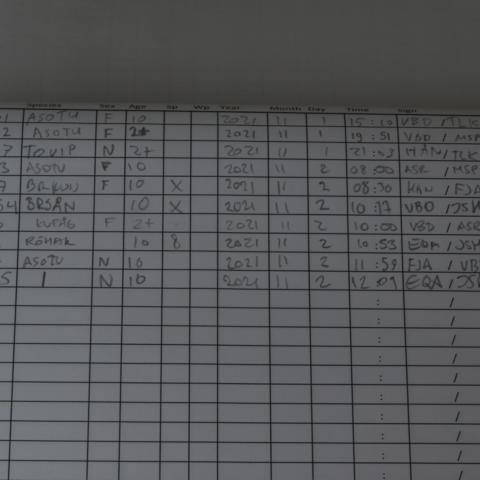 Species Sex Age Sp Wp Year Month Day Time Sign
1 ASOTU F 10 2021 11 1 15:10 VBD/TLK
2 ASOTU F 2+ 2021 11 1 19:51 VBD/MSP
7 TOVIP N 2+ 2021 11 1 21:03 HAN/TLK
3 ASOTU F 10 2021 11 2 08:00 ASR/MSP
7 F 10 X 2021 11 2 08:30 HAN/FJA
54 BRSAN 10 X 2021 11 2 10:17 VBD/JSH
F 2+ 2021 11 2 10:00 VBD/ASR
10 8 2021 11 2 10:53 EQA/JSH
ASOTU N 10 2021 11 2 11:59 FJA/VB
5 N 10 2021 11 2 12:09 EQA/JSH